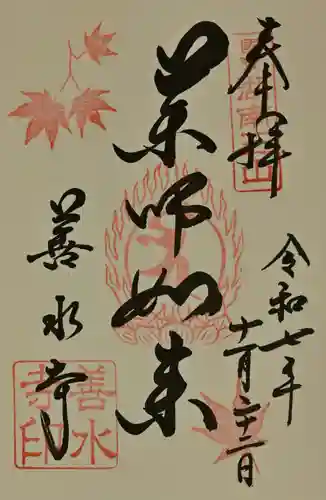 奉拝
令和七年
十一月二十二日
薬師如来
善水寺
善水
寺印